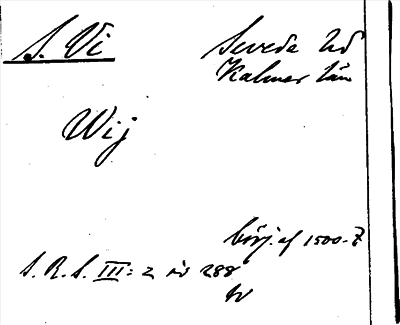 S. Vi
Sevede hd
Kalmar län
Wij
börj. af 1500-t
S. R. S. III: 2 sid 288